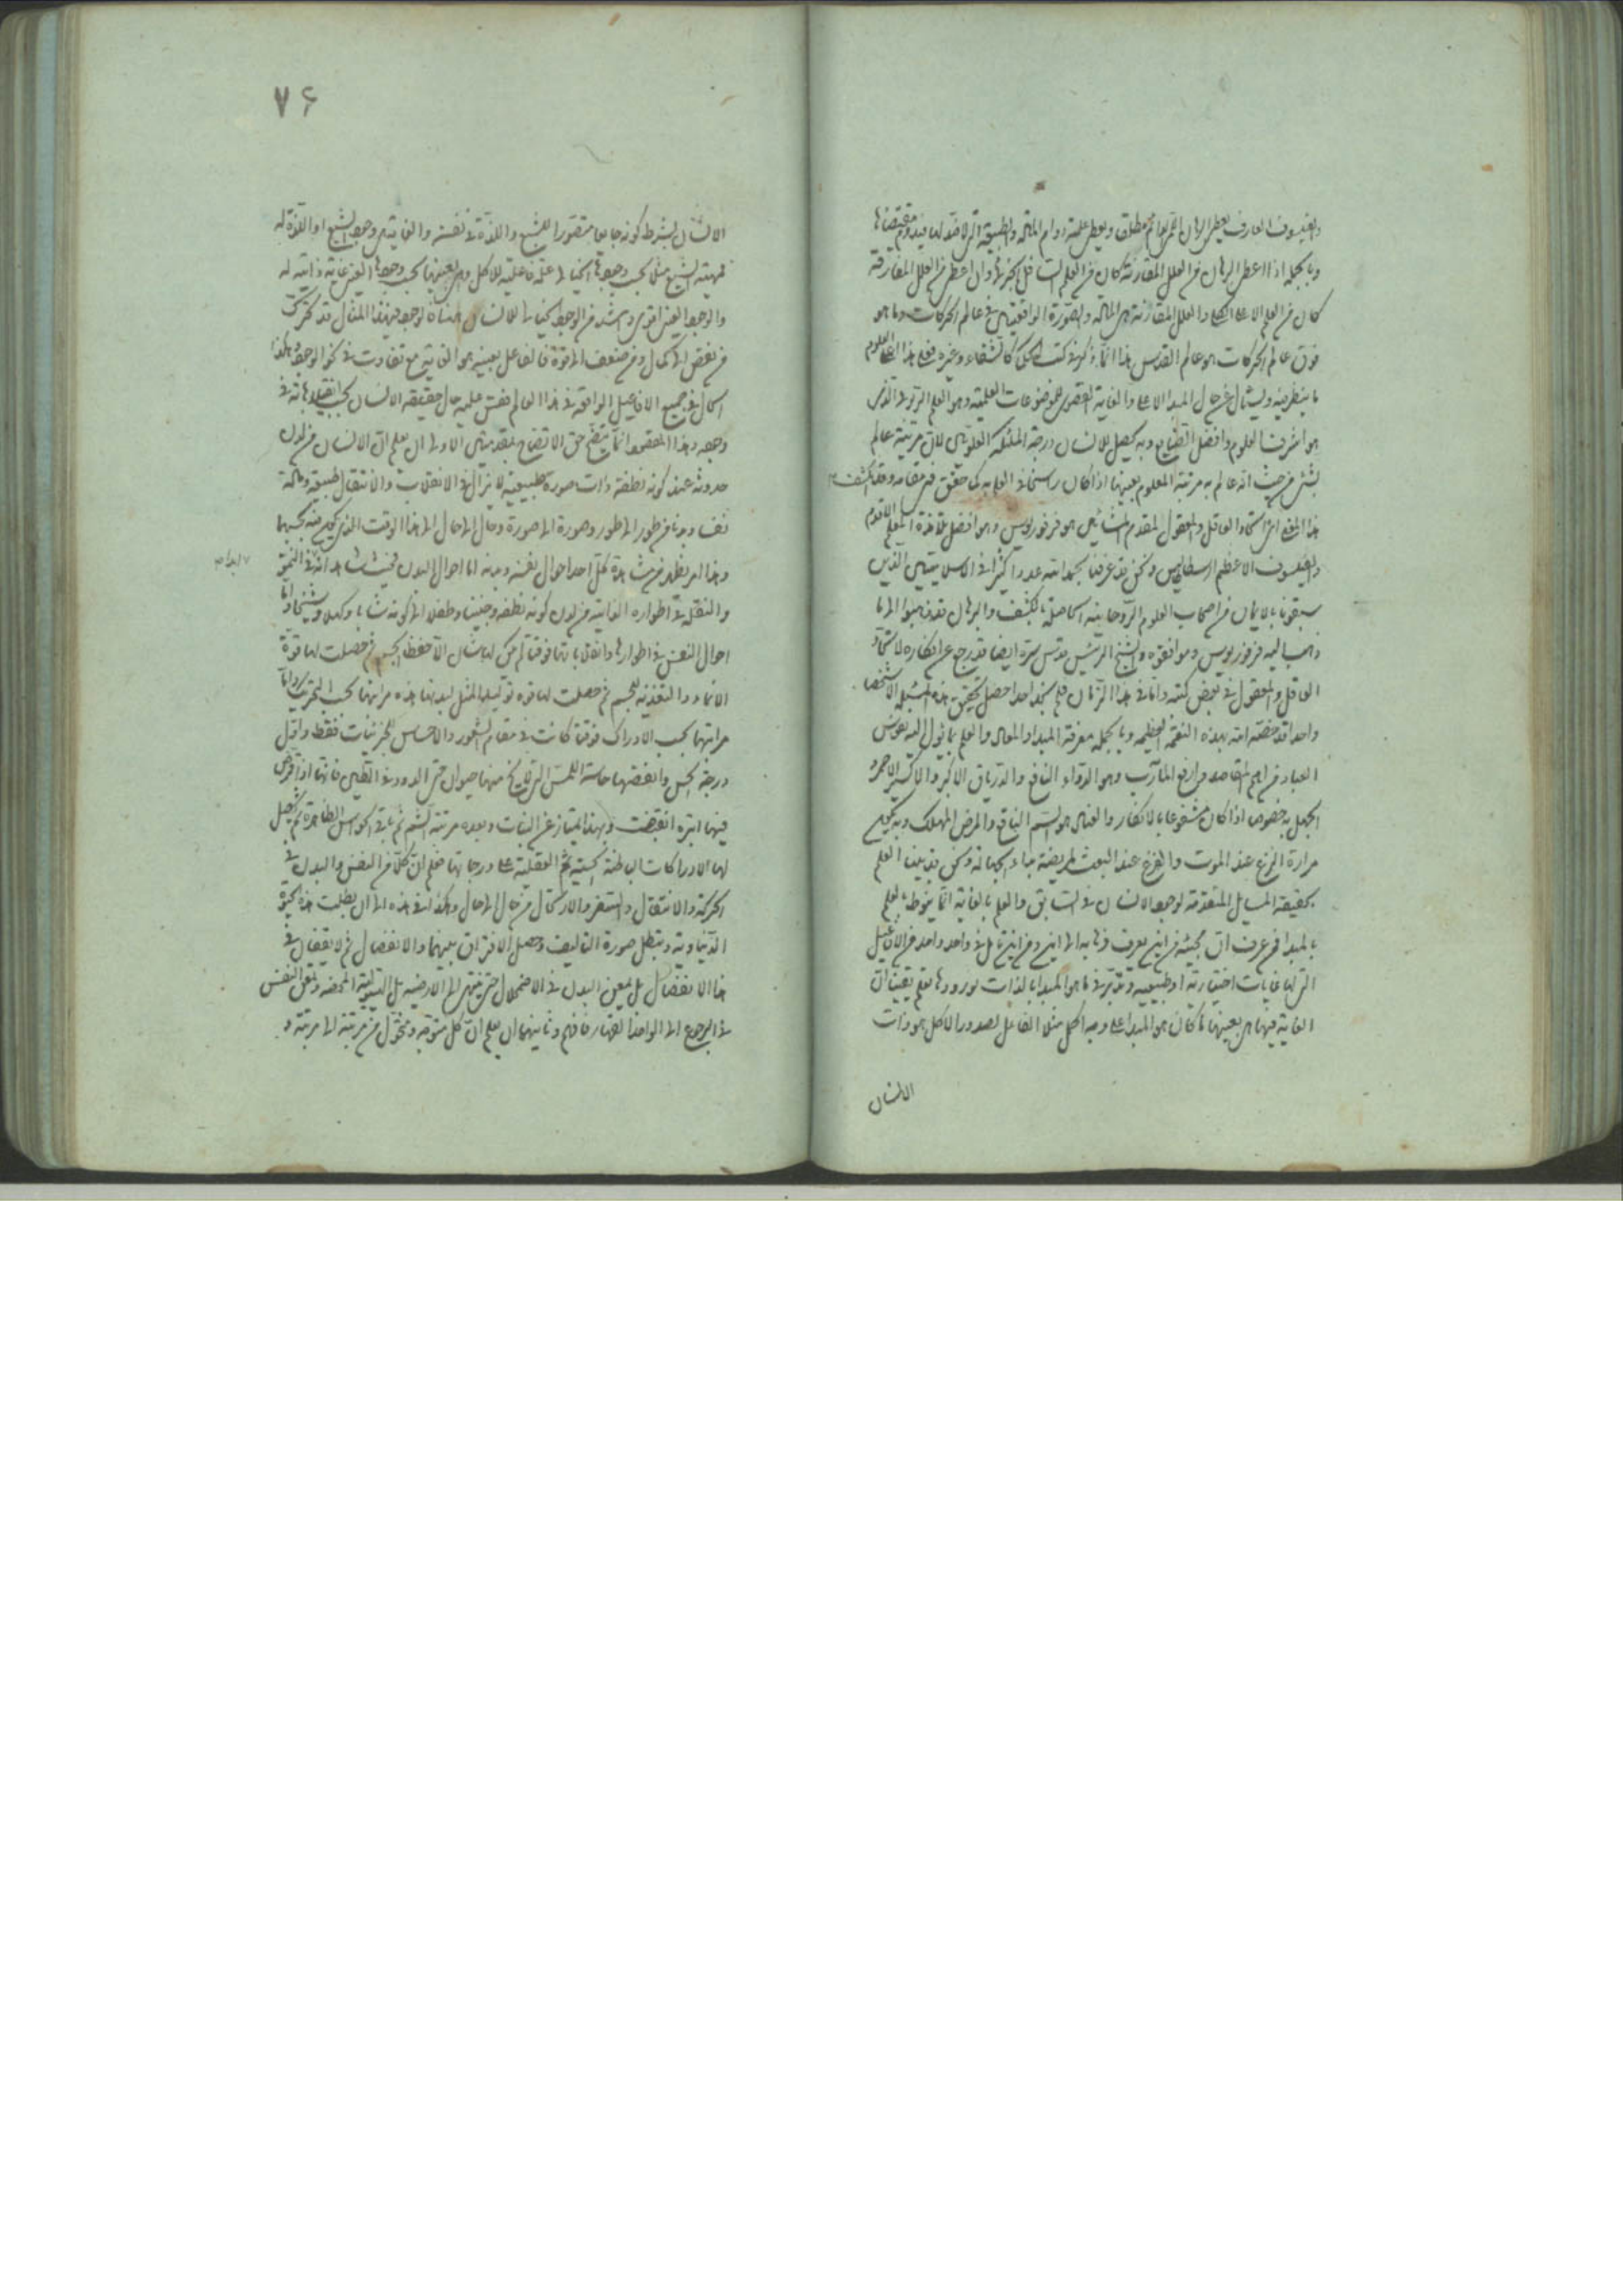 والفيلسوف العارف يعطى البرهان اللمى الدائم مطلقا ويعطى علته ما دام المادة والطبيعة التى لا ضد لها
وبالجملة اذا اعطى البرهان من العلل المقارنة كان من العلم السافل وان اعطى من العلل المفارقة
كان من العلم الاعلى الكلى والعلل المقارنة هى المادة والصورة الواقعتين فى عالم الحركات وما هو
فوق عالم الحركات هو عالم القدس هذا انما ذكره فى كتب الحكمى كالشفاء وغيره فعلى هذا العلوم
ما ينظر فيه ويسأل عن حال المبدا الاعلى والغاية القصوى لموضوعات العلمية وهو العلم الربوبى الذى
هو اشرف العلوم وافضل وبه يحصل للانسان درجة الملئكة العلويين لان مرتبة عالم
بشىء من حيث انه عالم به مرتبة المعلوم بعينها اذا كان راسخا فى العلم به كما حقق فى مقامه وقد انكشف
هذا المعنى اى اتحاد العاقل والمعقول لمقدم المشائين هو فرفوريوس وهو افضل تلامذة المعلم الاقدم
والفيلسوف الاعظم ارسطاطاليس ونحن قد عرفنا بحمد الله عددا كثيرا فى الاسلاميين الذين
سبقونا بالايمان من اصحاب العلوم الروحانية الحاصلة بالكشف والبرهان قد ذهبوا الى ما
ذهب اليه فرفوريوس وموافقوه والشيخ الرئيس قدس سره ايضا قد رجع عن انكاره لاتحاد
العاقل والمعقول فى بعض كتبه واما فى هذا الزمان فلم نجد احدا حصل تحقيق هذه المسئلة الا شخصا
واحدا قد خصه الله بهذه النعمة العظيمة وبالجملة معرفة المبدا والمعاد والعلم بما يؤل اليه نفوس
العباد من اهم المقاصد وارفع المآرب وهو الدواء النافع والترياق الاكبر والاكسير الاحمر و
الجهل به خصوصا اذا كان مشفوعا بالانكار والعناد هو السم الناقع والمرض المهلك وبه
مرارة النزع عند الموت والفزع عند البعث ونحن قد بينا العلم
بحقيقة المسائل المتقدمة لوجود الانسان فى السابق والعلم بالغاية انما ينوط بالعلم
بالمبدا فمن عرف ان مجيئه من اين يعرف ذهابه الى اين ومن اين تأمل فى واحد واحد من الافاعيل
التى لها غايات اختيارية او طبيعية وتدبر فى ما هو المبدا بالذات لورودها يعلم يقينا ان
الغاية فيها هى بعينها ما كان هو المبدا على وجه اكمل مثلا الفاعل لصدور الاكل هو ذات
الانسان
٧۶
الانسان بشرط كونه جايعا متصورا للشبع واللذة فى نفسه والغاية هى وجود الشبع او اللذة له
فمهية الشبع مثلا بحسب وجودها الخيالى علة فاعلية للاكل وهى بعينها بحسب وجودها العينى غاية ذاتية له
والوجود العينى اقوى واشد من الوجود الخيالى
من نقص الى كمال ومن ضعف الى قوة فالفاعل بعينه هو الغاية مع تفاوت فى نحو الوجود وهكذا
الحال فى جميع الافاعيل الواقعة فى هذا العالم فقس عليه حال حقيقة الانسان بحسب
وجوده وهذا المقصود انما يتضح حق الاتضاح بمقدمتين الاولى ان يعلم ان الانسان من لدن
حدوثه عند كونه نطفة ذات صورة طبيعية لا يزال فى الانقلاب والانتقال طبيعة ومادة
نفسا وبدنا من طور الى طور وصورة الى صورة وحال الى حال الى هذا الوقت الذى
وهذا امر يظهر من مشاهدة كل احد احوال نفسه وبدنه اما احوال البدن فحيث شاهد انه فى النمو
والنقل فى اطواره الفانية من لدن كونه نطفة وجنينا وطفلا الى كونه شابا وكهلا وشيخا واما
احوال النفس فى اطوارها وانقلاباتها فوقتا لم يكن لها شان الا حفظ الجسم ثم حصلت لها قوة
الانماء والتغذية للجسم ثم حصلت لها قوة توليد المثل لبدنها هذه مراتبها بحسب التحريك واما
مراتبها بحسب الادراك فوقتا كانت فى مقام الشعور والاحساس للجزئيات فقط واول
درجة الحس وانقصها حاسة اللمس التى لا يخ منها حيوان حتى الدود فى الطين فانها اذا قرص
فيها ابرة انقبضت وبهذا امتياز عن النبات وبعده مرتبة الشم ثم باقى الحواس الظاهرة ثم يحصل
لها الادراكات الباطنة الحسية ثم العقلية على درجاتها فعلم ان كلا من النفس والبدن فى
الحركة والانتقال والسفر والارتحال من حال الى حال وهكذا فى هذه الى ان بطلت هذه الحيوة
الدنياوية وتبطل صورة التاليف وحصل الافتراق بينهما والانفصال ثم لا يقفان فى
هذا الانفصال بل يمعن البدن فى الاضمحلال حتى ينتهى الى الارضية بل الهيولية المحضة وتمعن النفس
فى الرجوع الى الواحد القهار فافهم وثانيتهما ان يعلم ان كل متوجه ومتحول من مرتبة الى مرتبة و